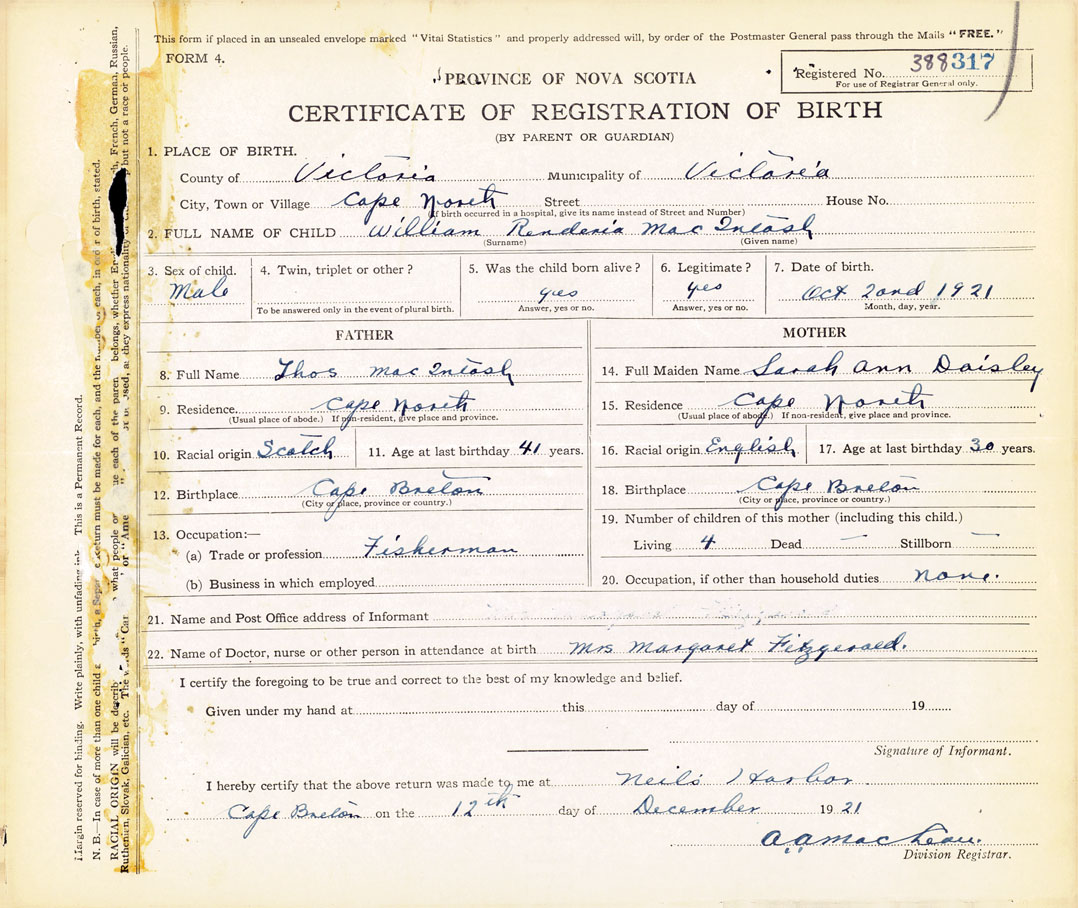 This form if placed in an unsealed envelope marked "Vital Statistics" and properly addressed will, by order of the Postmaster General pass through the Mails "FREE."
FORM 4.
PROVINCE OF NOVA SCOTIA
Registered No. 388317
For use of Registrar General only.
CERTIFICATE OF REGISTRATION OF BIRTH
(BY PARENT OR GUARDIAN)
1. PLACE OF BIRTH.
County of Victoria Municipality of Victoria
City, Town or Village Cape North Street House No.
(If birth occurred in a hospital, give its name instead of Street and Number)
2. FULL NAME OF CHILD William Renderia Mac Intosh
(Surname) (Given name)
3. Sex of child. 4. Twin, triplet or other? 5. Was the child born alive? 6. Legitimate? 7. Date of birth.
Male yes yes Oct 2ond 1921
To be answered only in the event of plural birth. Answer, yes or no. Answer, yes or no. Month, day, year.
FATHER
8. Full Name Thos Mac Intosh
9. Residence. Cape North
(Usual place of abode.) If non-resident, give place and province.
10. Racial origin Scotch 11. Age at last birthday 41 years.
12. Birthplace Cape Breton
(City or place, province or country.)
13. Occupation:—
(a) Trade or profession Fisherman
(b) Business in which employed
MOTHER
14. Full Maiden Name Sarah Ann Daisley
15. Residence Cape North
(Usual place of abode.) If non-resident, give place and province.
16. Racial origin English 17. Age at last birthday 30 years.
18. Birthplace Cape Breton
(City or place, province or country.)
19. Number of children of this mother (including this child.)
Living 4 Dead — Stillborn —
20. Occupation, if other than household duties none.
21. Name and Post Office address of Informant
22. Name of Doctor, nurse or other person in attendance at birth Mrs Margaret Fitzgerald.
I certify the foregoing to be true and correct to the best of my knowledge and belief.
Given under my hand at this day of 19
Signature of Informant.
I hereby certify that the above return was made to me at Neils Harbor
Cape Breton on the 12th day of December 1921
A.A. MacLean.
Division Registrar.
Margin reserved for binding. Write plainly, with unfading ink. This is a Permanent Record.
N. B.—In case of more than one child birth, a return must be made for each, and the of each, in order of birth, stated.
RACIAL ORIGIN will be what people or each of the belongs, whether French, German, Russian,
Ruthenian, Slovak, Galician, etc. The or they express nationality but not a race or people.